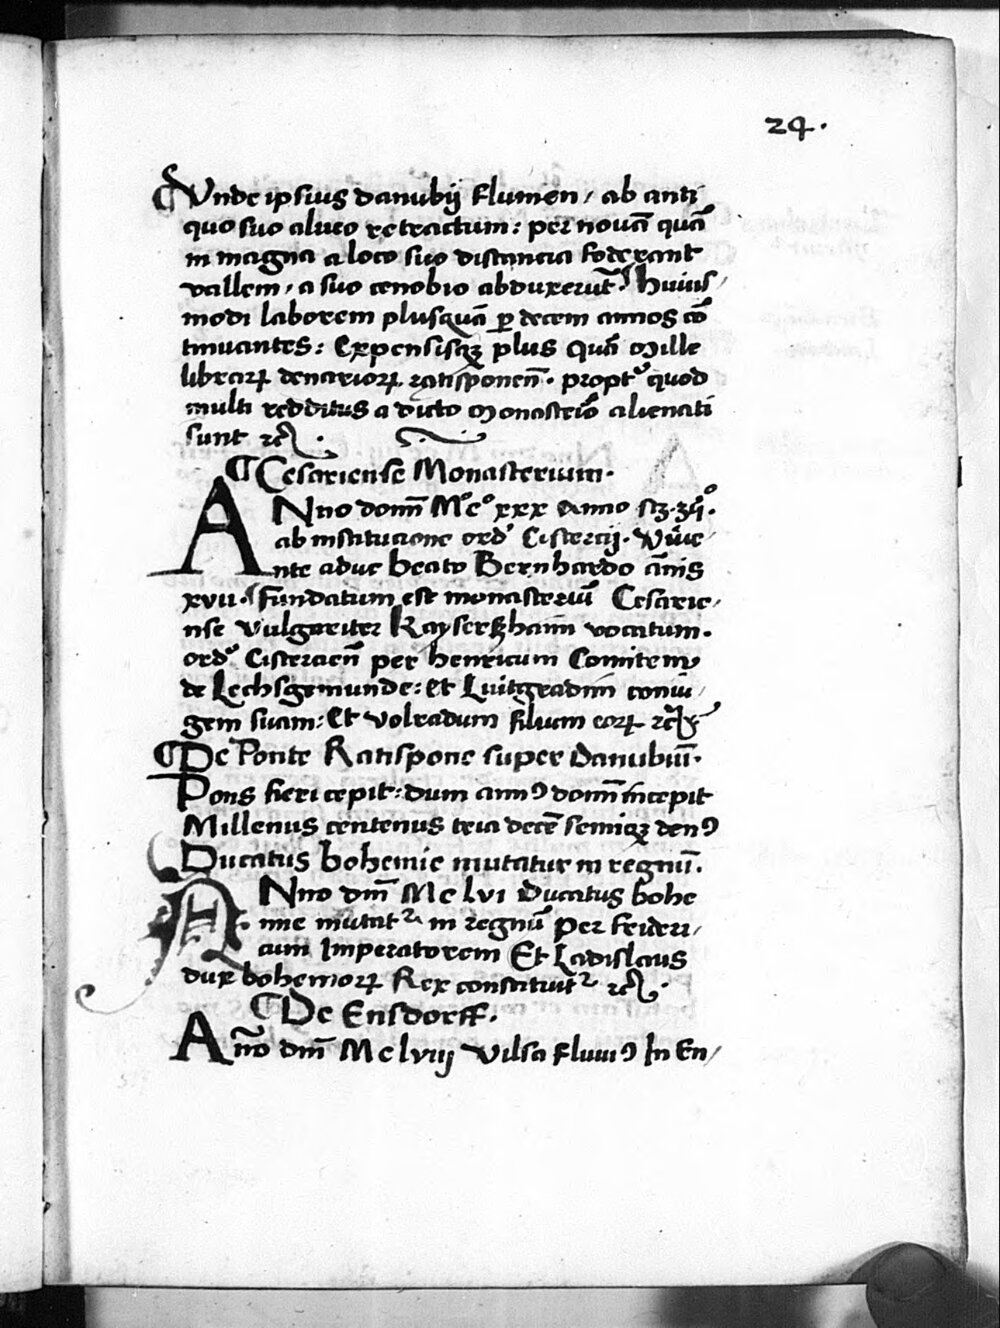 24.
Unde ipsius danubij flumen / ab anti
quo suo alueo retractum : per nouã quã
in magna a loco suo distancia foderant
vallem / a suo cenobio abduxerũt Huius /
modi laborem plusquã ꝑ decem annos cõ
tinuantes : Expensisqꝫ plus quã Mille
librarꝝ denariorꝝ ratisponeñ . propt' quod
multi redditus a dicto Monasterio alienati
sunt ꝛcꝭ .
Cesariense Monasterium .
ANno domĩ Mº cº xxx Anno
ab institucione ord' Cistercij .
nte aduc beato Bernhardo ãnis
xvii fundatum est monasteriũ Cesarie /
nse vulgariter Kayserßhaim vocatum .
ord' Cistercieñ per henricum Comitem
de Lechsgemunde : et Luitgradim coniu /
gem suam : Et volradum filium eorꝝ ꝛcꝭ
De Ponte Ratispone super danubiũ .
Pons fieri cepit : dum annꝰ domĩ incepit
Millenus centenus decẽ semiqꝫ denꝰ
Ducatus bohemie mutatur in regnũ .
ANno dm̃ Mc lvi Ducatus bohe
mie mutat᷑ in regnũ per frideri /
cum Imperatorem Et Ladislaus
dux bohemorꝝ Rex constituit᷑ ꝛcꝭ .
De Ensdorff .
Año dm̃ Mclviij vilsa fluuiꝰ In En /